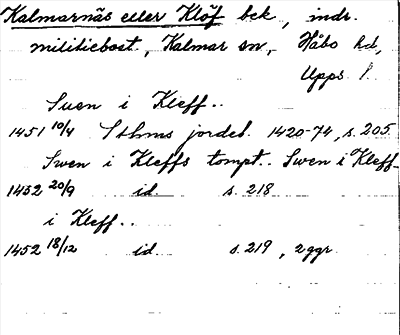 Kalmarnäs eller Klöf bek, indr.
militiebost., Kalmar sn, Håbo hd,
Upps l.
Suen i Kleff..
1451 10/4 Sthms jordeb. 1420-74, s. 205
Swen i Kleffs tompt.. Swen i Kleff..
1452 20/9 id. s. 218
i Kleff..
1452 18/12 id. s. 219, 2 ggr